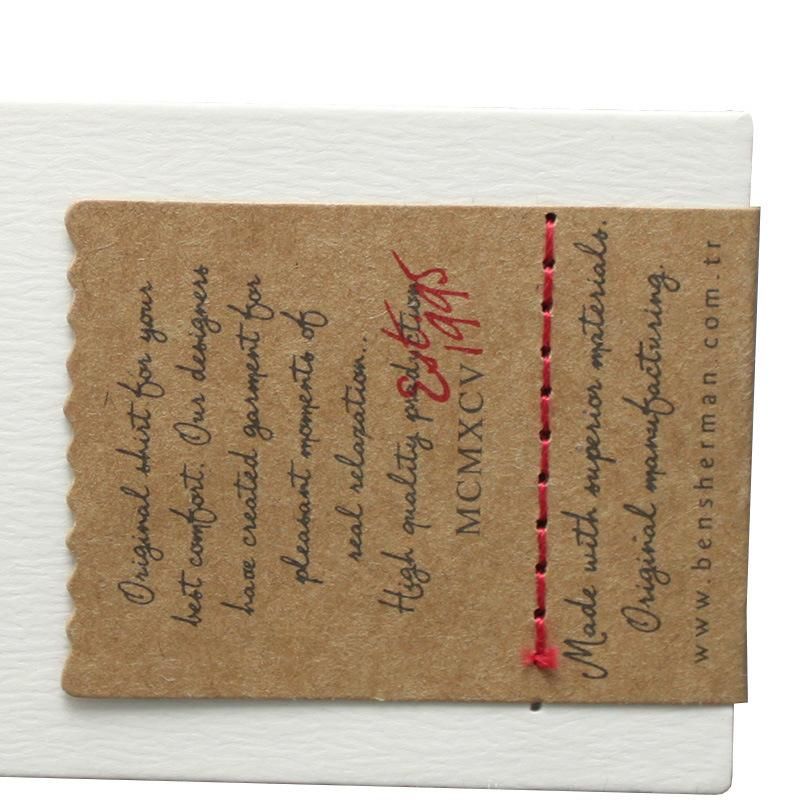 Original shirt for your
best comfort. Our designers
have created garment for
pleasant moments of
real relaxation..
High quality production
Est. 1995
MCMXCV
Made with superior materials.
Original manufacturing.
www.bensherman.com.tr